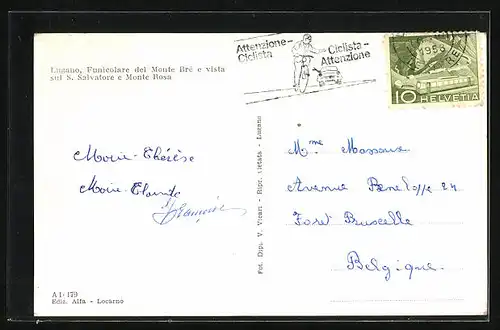 Lugano, Funicolare del Monte Brè e vista
sul S. Salvatore e Monte Rosa
Attenzione-
Ciclista
Ciclista-
Attenzione
1956
10 HELVETIA
Marie-Thérèse
Marie-Claude
Mme
Avenue 24
Foret Bruxelles
Belgique.
Fot. Dipl. V. Vicari - Ripr. vietata - Lugano
A 1 179
Ediz. Alfa - Locarno